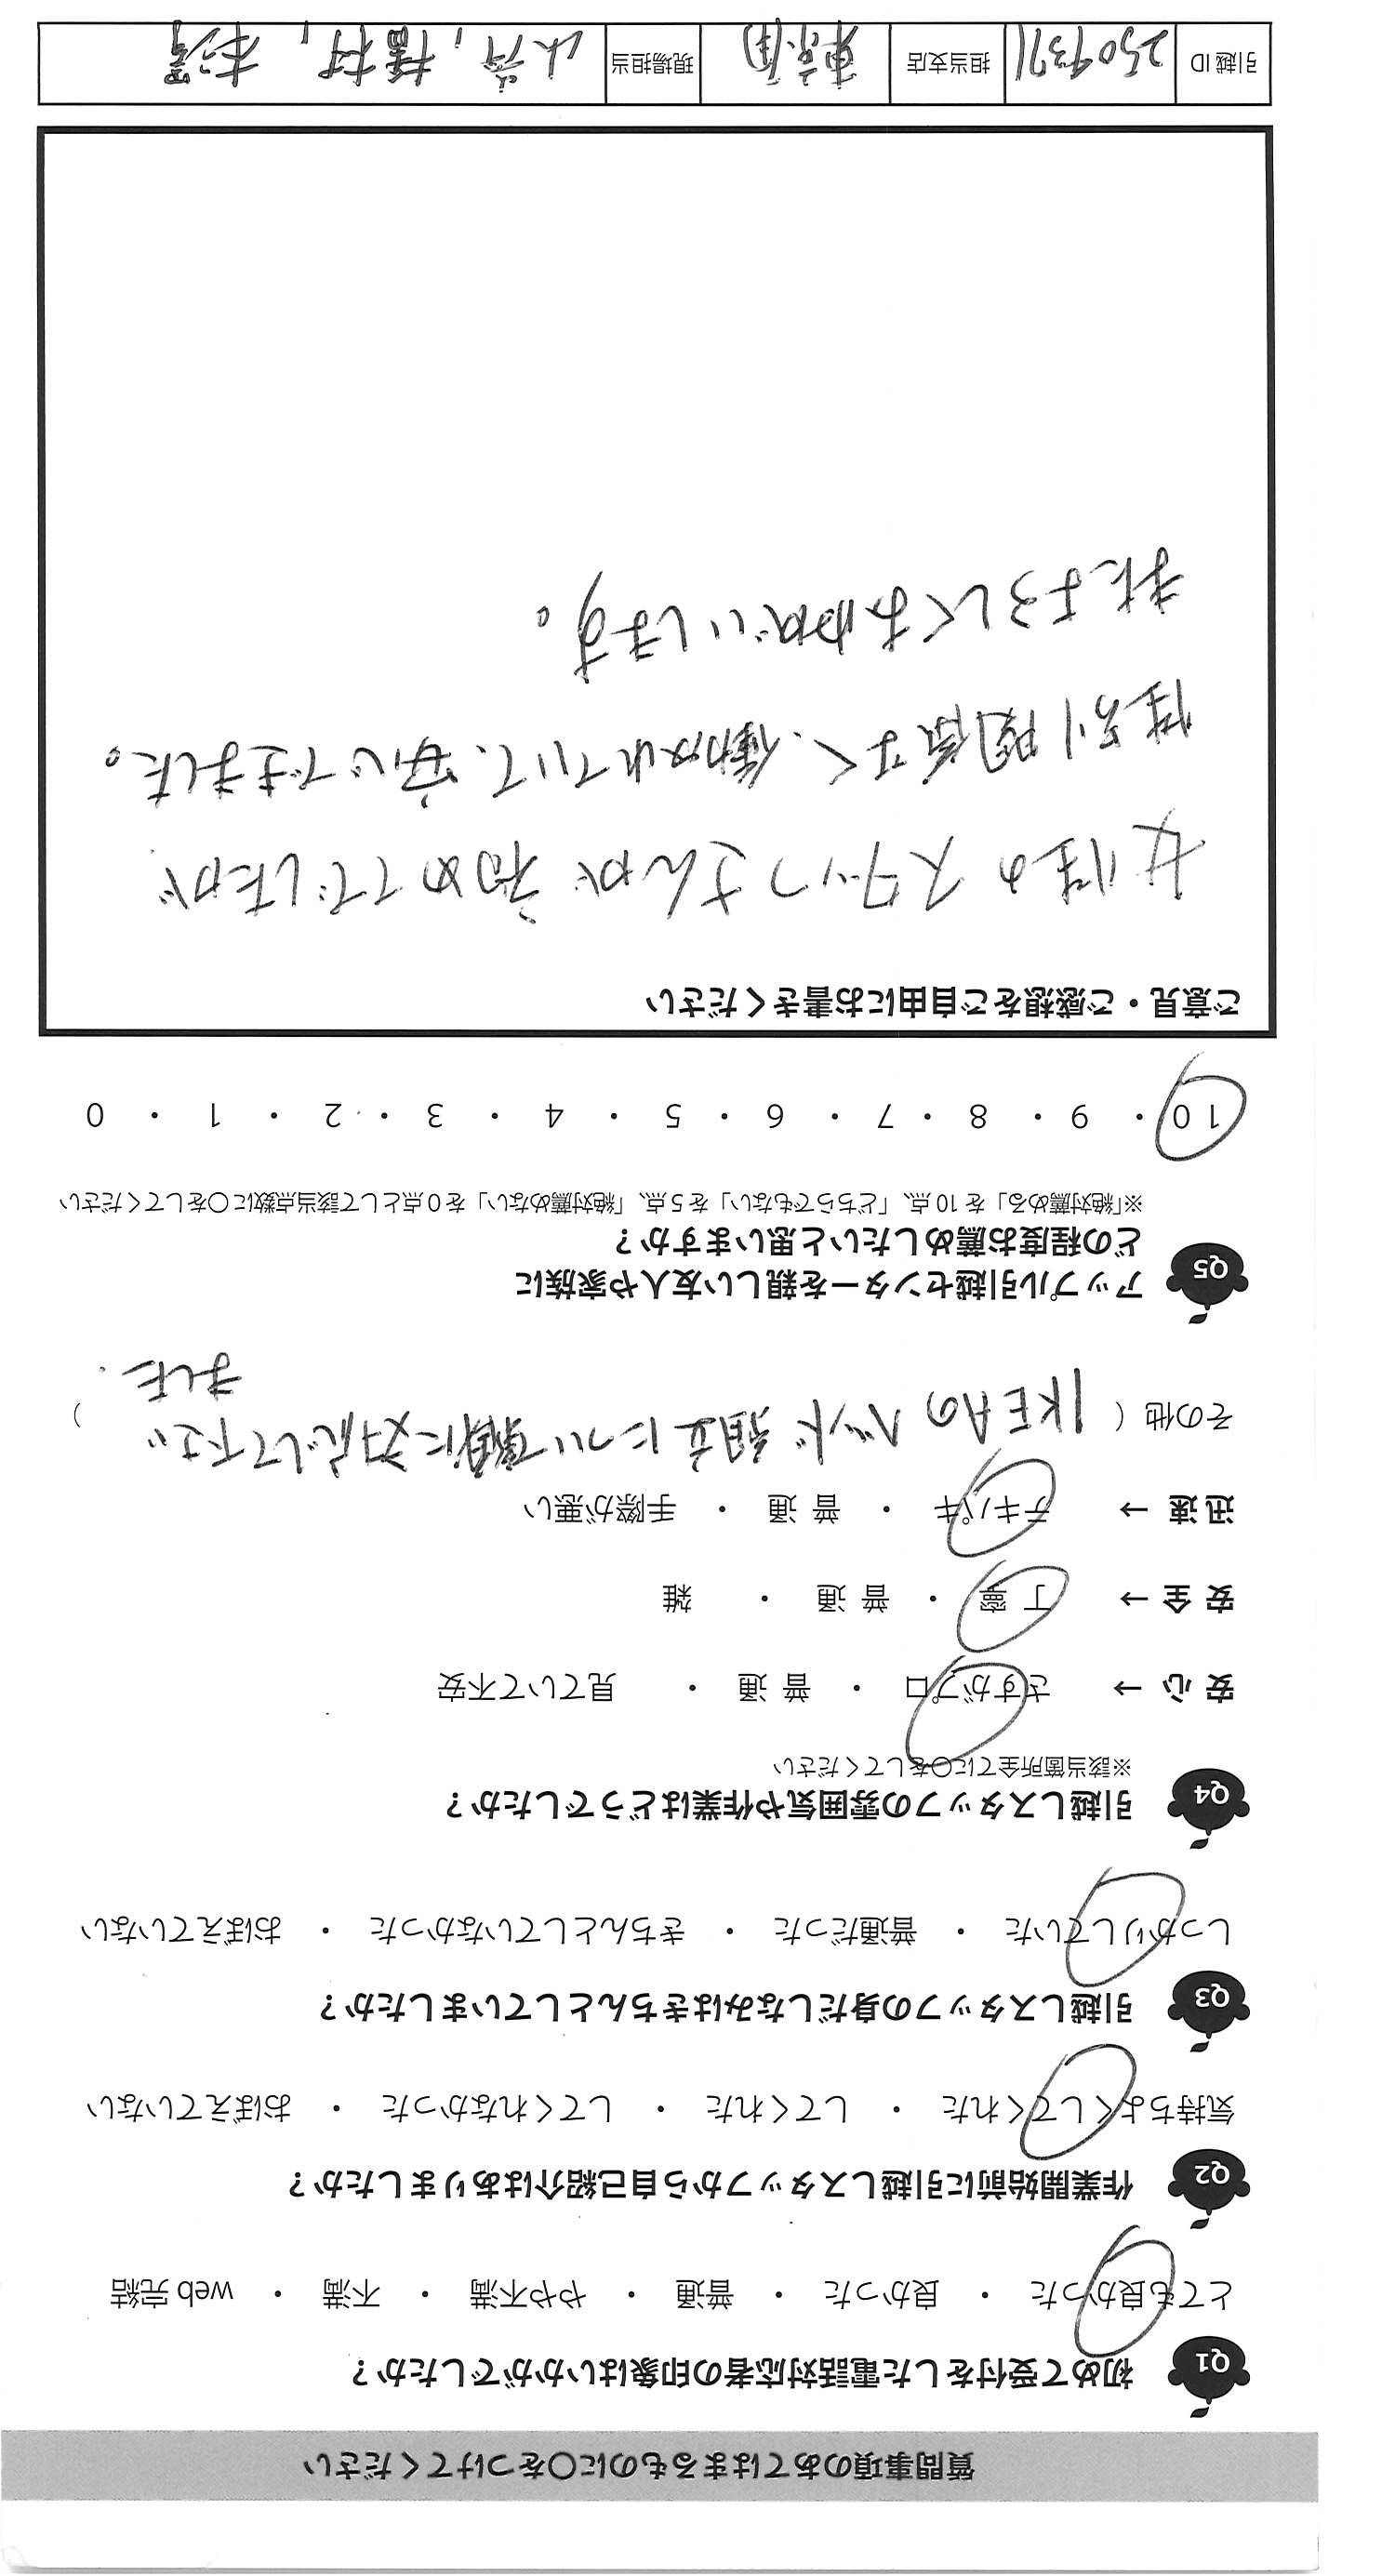 質問事項のあてはまるものに○をつけてください
Q1 初めて受付をした電話対応者の印象はいかがでしたか？
とても良かった ・ 良かった ・ 普通 ・ やや不満 ・ 不満 ・ web 完結
Q2 作業開始前に引越しスタッフから自己紹介はありましたか？
気持ちよくしてくれた ・ してくれた ・ してくれなかった ・ おぼえていない
Q3 引越しスタッフの身だしなみはきちんとしていましたか？
しっかりしていた ・ 普通だった ・ きちんとしていなかった ・ おぼえていない
Q4 引越しスタッフの雰囲気や作業はどうでしたか？
※該当箇所全てに○をしてください
安 心 → さすがプロ ・ 普 通 ・ 見ていて不安
安 全 → 丁 寧 ・ 普 通 ・ 雑
迅 速 → テキパキ ・ 普 通 ・ 手際が悪い
その他（ IKEAのベッド組立について 対応して下さい ）
ました.
Q5 アップル引越センターを親しい友人や家族に
どの程度お薦めしたいと思いますか？
※「絶対薦める」を 10 点、「どちらでもない」を 5 点、「絶対薦めない」を 0 点として該当点数に○をしてください
10 ・ 9 ・ 8 ・ 7 ・ 6 ・ 5 ・ 4 ・ 3 ・ 2 ・ 1 ・ 0
ご意見・ご感想をご自由にお書きください
女性のスタッフさんが初めてでしたが
性別関係なく、働かれていて、安心できました。
またよろしくおねがいします。
引越 ID 2509371 担当支店 東京南 現場担当